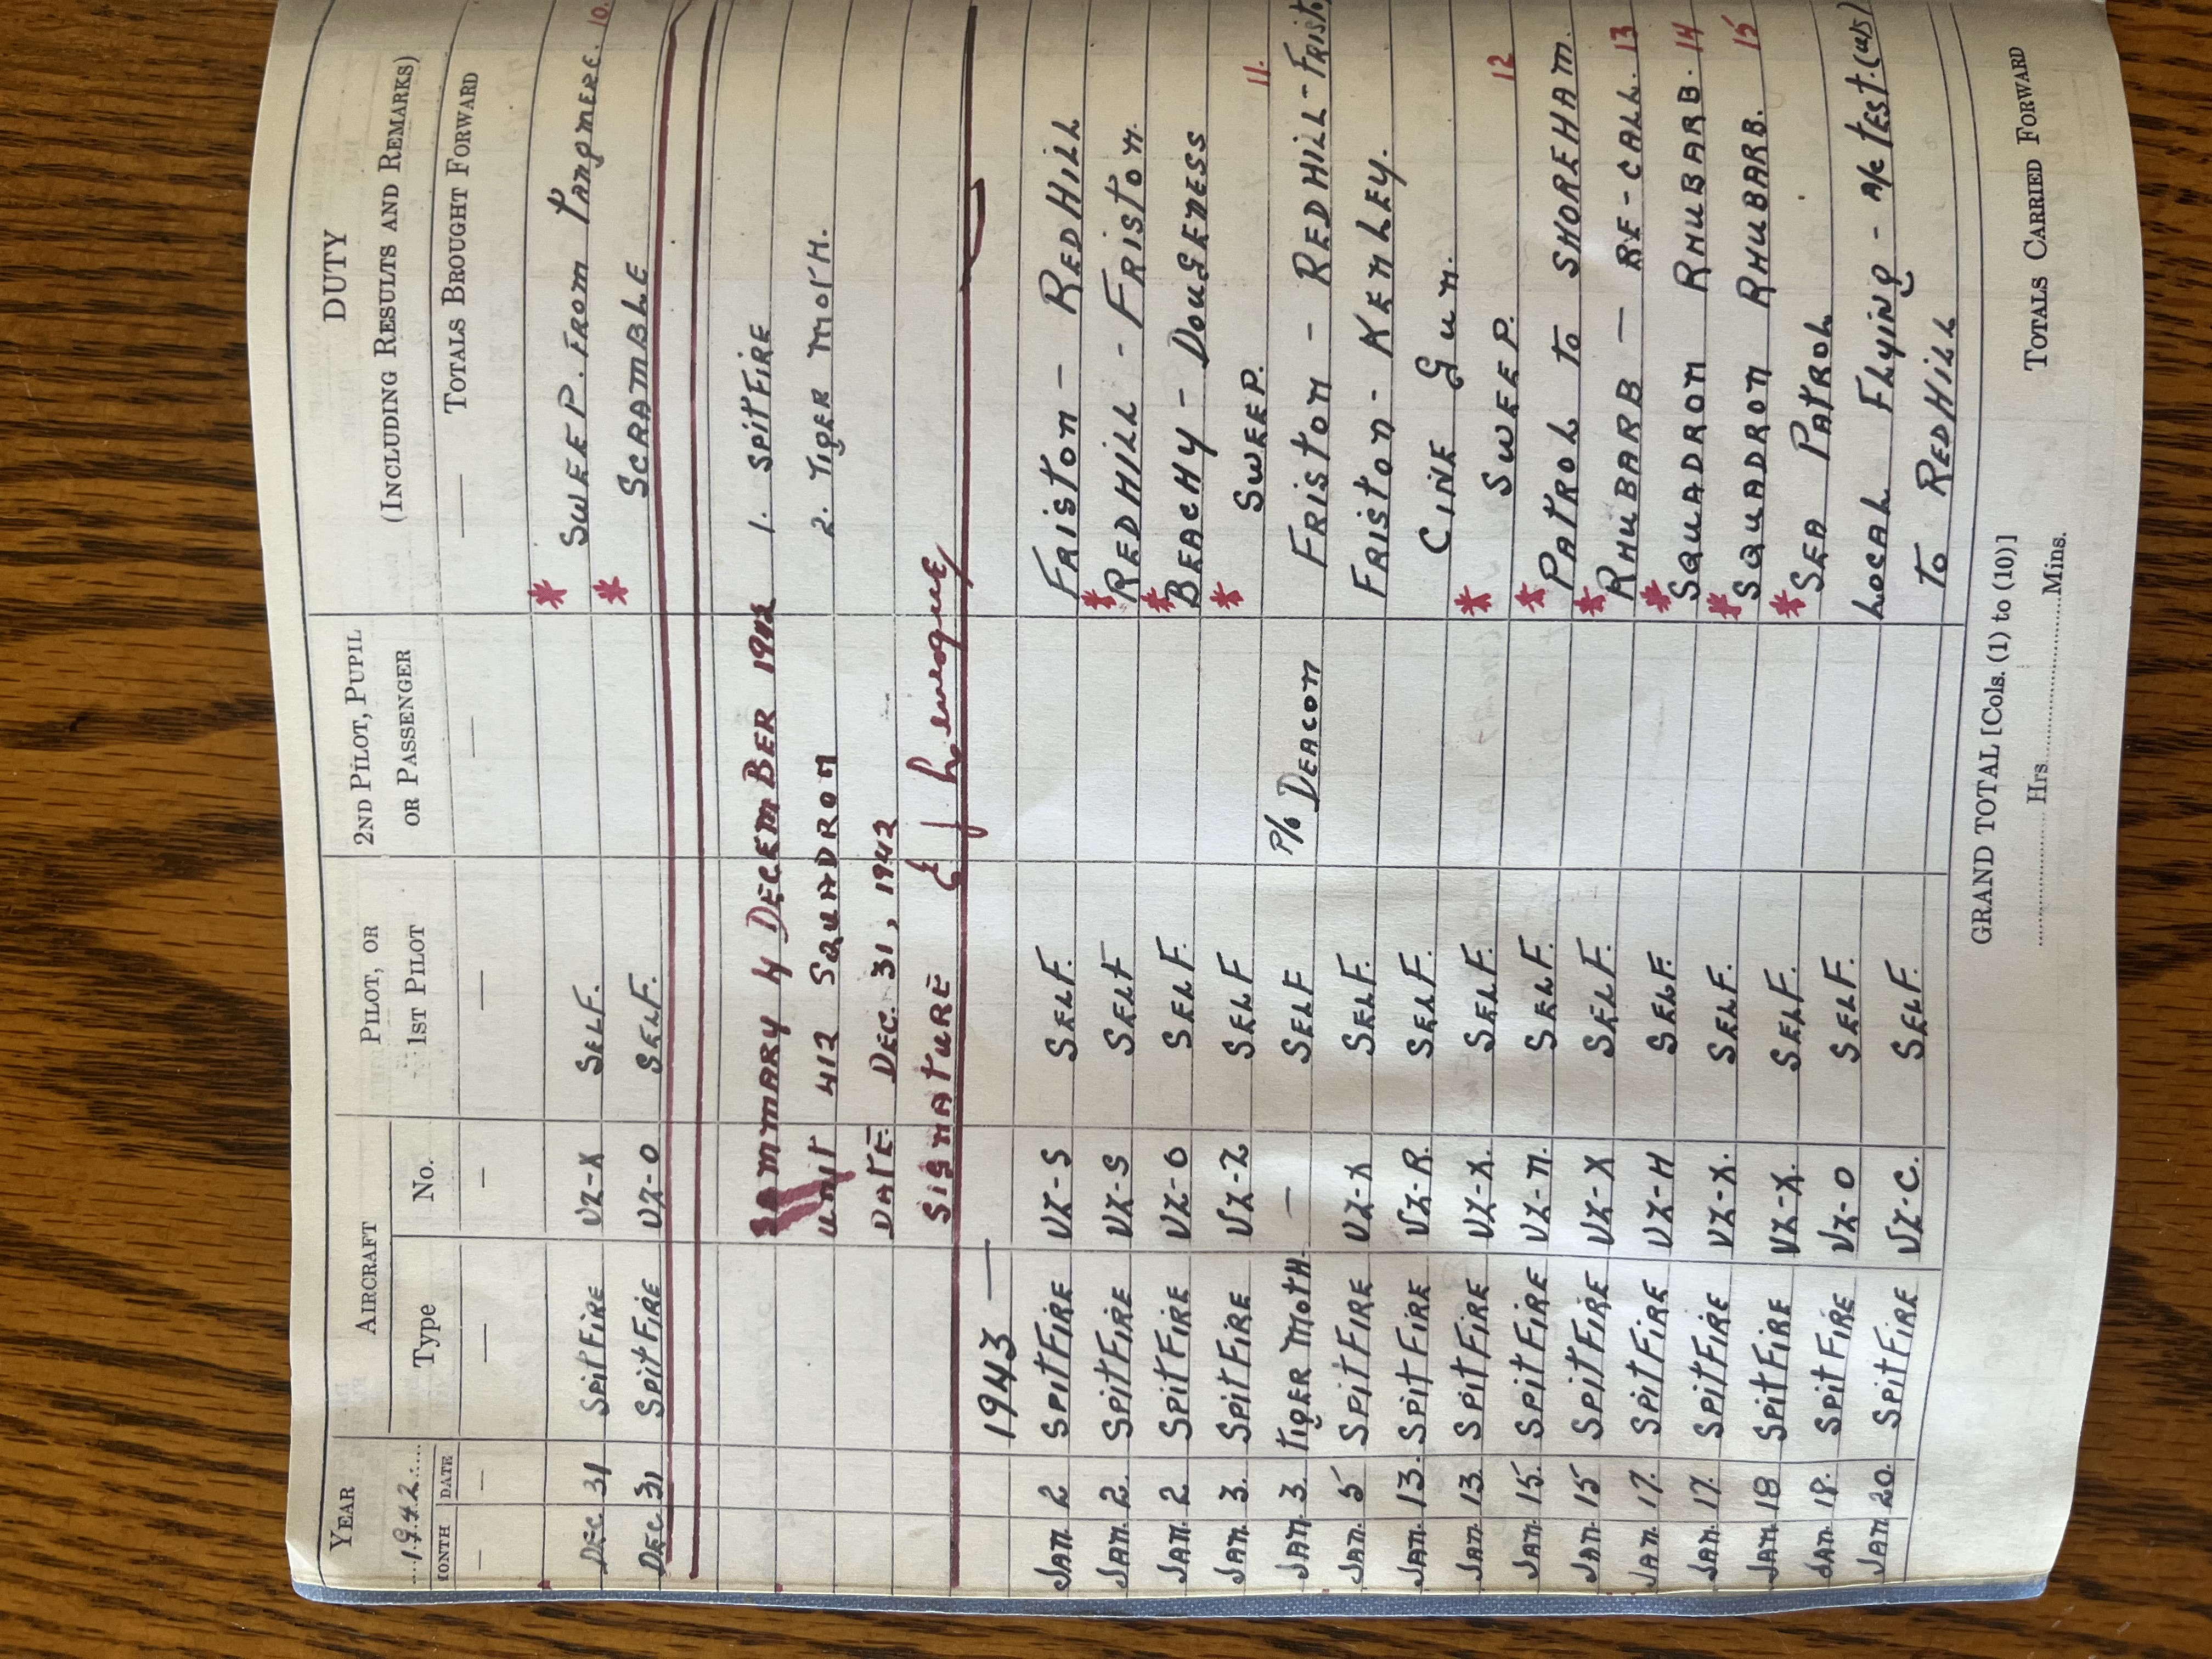 YEAR AIRCRAFT PILOT, OR 1ST PILOT 2ND PILOT, PUPIL OR PASSENGER DUTY (INCLUDING RESULTS AND REMARKS)
1942 MONTH DATE Type No.
— — — — — — — TOTALS BROUGHT FORWARD
DEC 31 SPITFIRE VZ-X SELF. * SWEEP. FROM TANGMERE. 10.
DEC 31 SPITFIRE VZ-O SELF. * SCRAMBLE
SUMMARY 4 DECEMBER 1942 1. SPITFIRE
UNIT 412 SQUADRON 2. TIGER MOTH.
DATE DEC. 31, 1942
SIGNATURE
1943 —
JAN. 2 SPITFIRE VZ-S SELF. FRISTON - REDHILL
JAN. 2. SPITFIRE VZ-S SELF * REDHILL - FRISTON.
JAN. 2 SPITFIRE VZ-O SELF. * BEACHY - DOUGENESS
JAN. 3. SPITFIRE VZ-Z SELF * SWEEP. 11.
JAN. 3. TIGER MOTH. — SELF P/O DEACON FRISTON - REDHILL - FRIST
JAN. 5 SPITFIRE VZ-X SELF. FRISTON - KENLEY.
JAN. 13. SPITFIRE VZ-R. SELF. CINE GUN.
JAN. 13 SPITFIRE VZ-X. SELF. * SWEEP. 12
JAN. 15. SPITFIRE VZ-N. SELF. * PATROL TO SHOREHAM.
JAN. 15 SPITFIRE VZ-X SELF. * RHUBARB — RE-CALL. 13
JAN. 17. SPITFIRE VZ-H SELF. * SQUADRON RHUBARB. 14
JAN. 17. SPITFIRE VZ-X. SELF. * SQUADRON RHUBARB. 15
JAN 18 SPITFIRE VZ-X. SELF. * SEA PATROL
JAN. 18. SPITFIRE VZ-O SELF. LOCAL FLYING - A/C TEST. (U/S)
JAN 20. SPITFIRE VZ-C. SELF. TO REDHILL
GRAND TOTAL [Cols. (1) to (10)]
Hrs. Mins. TOTALS CARRIED FORWARD